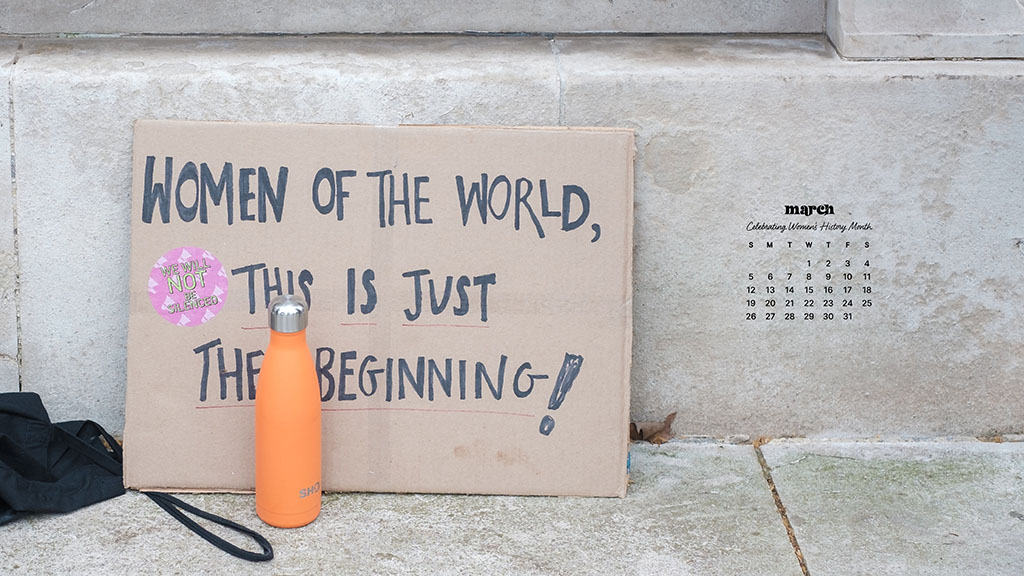 WOMEN OF THE WORLD,
WE WILL
NOT
BE
SILENCED
THIS IS JUST
THE BEGINNING!
SHO
march
Celebrating Women's History Month
S M T W T F S
1 2 3 4
5 6 7 8 9 10 11
12 13 14 15 16 17 18
19 20 21 22 23 24 25
26 27 28 29 30 31